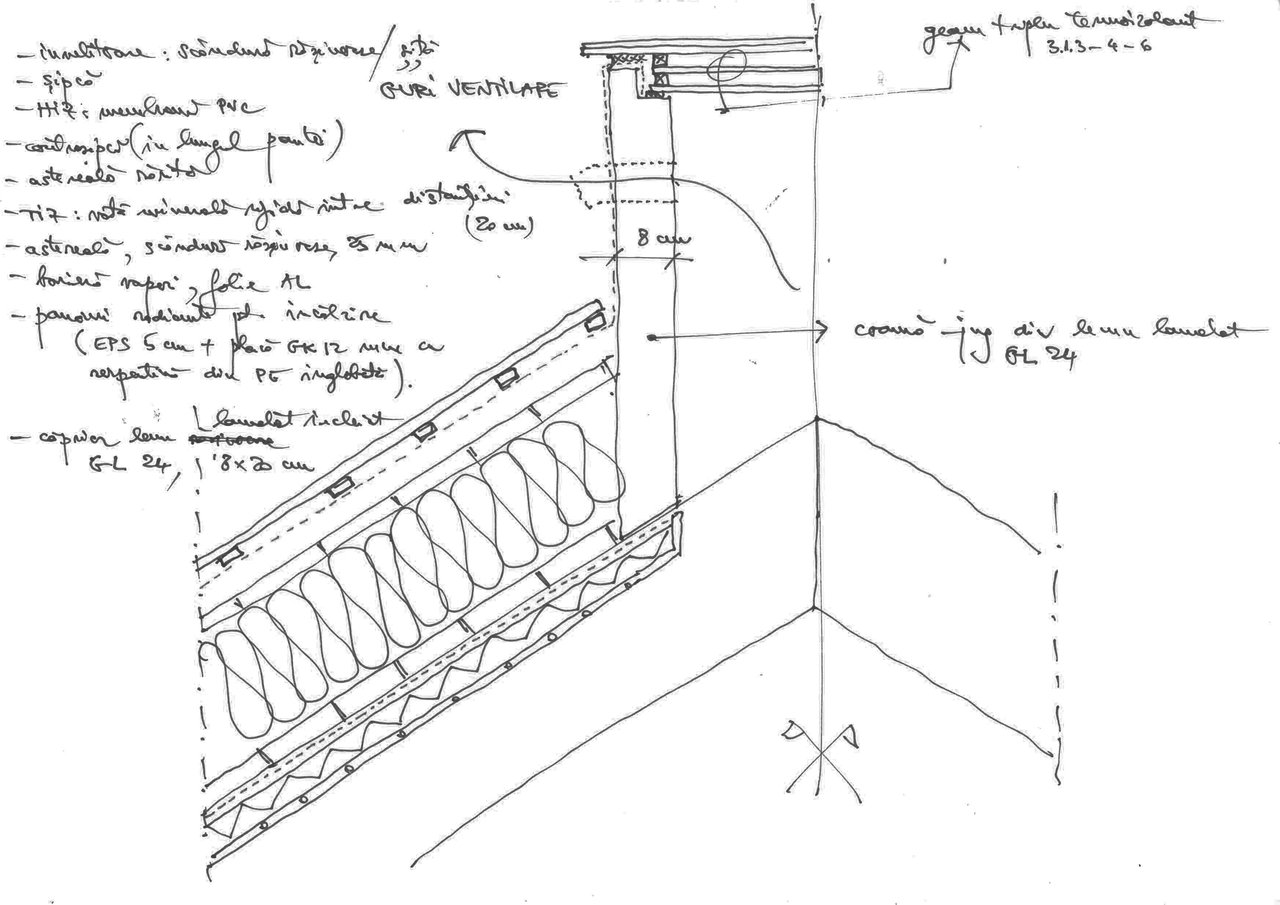 - învelitoare: scândură rășinoase / șiță
- șipcă
- HIZ: membrană PVC
- contrașipcă (în lungul pantei)
- astereală rărită
- TIZ: vată minerală rigidă între distanțieri
(20 cm)
- astereală, scândură rășinoase, 25 mm
- barieră vapori, folie AL
- panouri radiante pt. încălzire
(EPS 5 cm + placă GK 12 mm cu
serpentină din PE înglobată).
- căprior lemn lamelat încleiat
GL 24, 8x20 cm
GURI VENTILARE
geam triplu termoizolant
3.1.3-4-6
8 cm
coamă - jug din lemn lamelat
GL 24